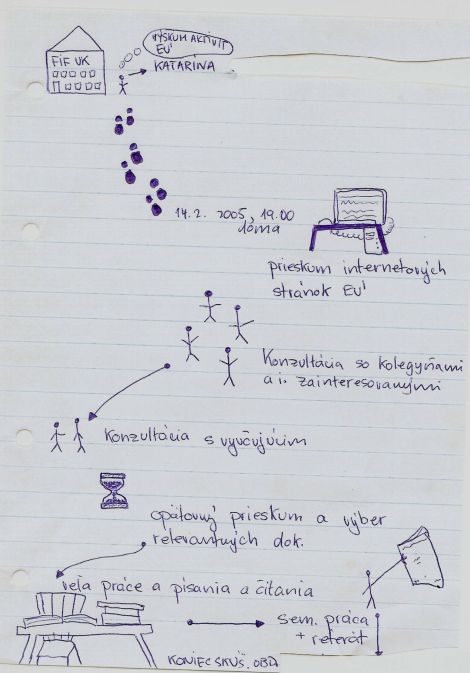 VÝSKUM AKTIVÍT
EÚ
FiF UK
KATARÍNA
14.2. 2005, 19.00
doma
prieskum internetových
stránok EÚ
Konzultácia so kolegyňami
a i. zainteresovanými
Konzultácia s vyučujúcim
opätovný prieskum a výber
relevantných dok.
veľa práce a písania a čítania
sem. práca
+ referát
KONIEC SKÚŠ. OBD.